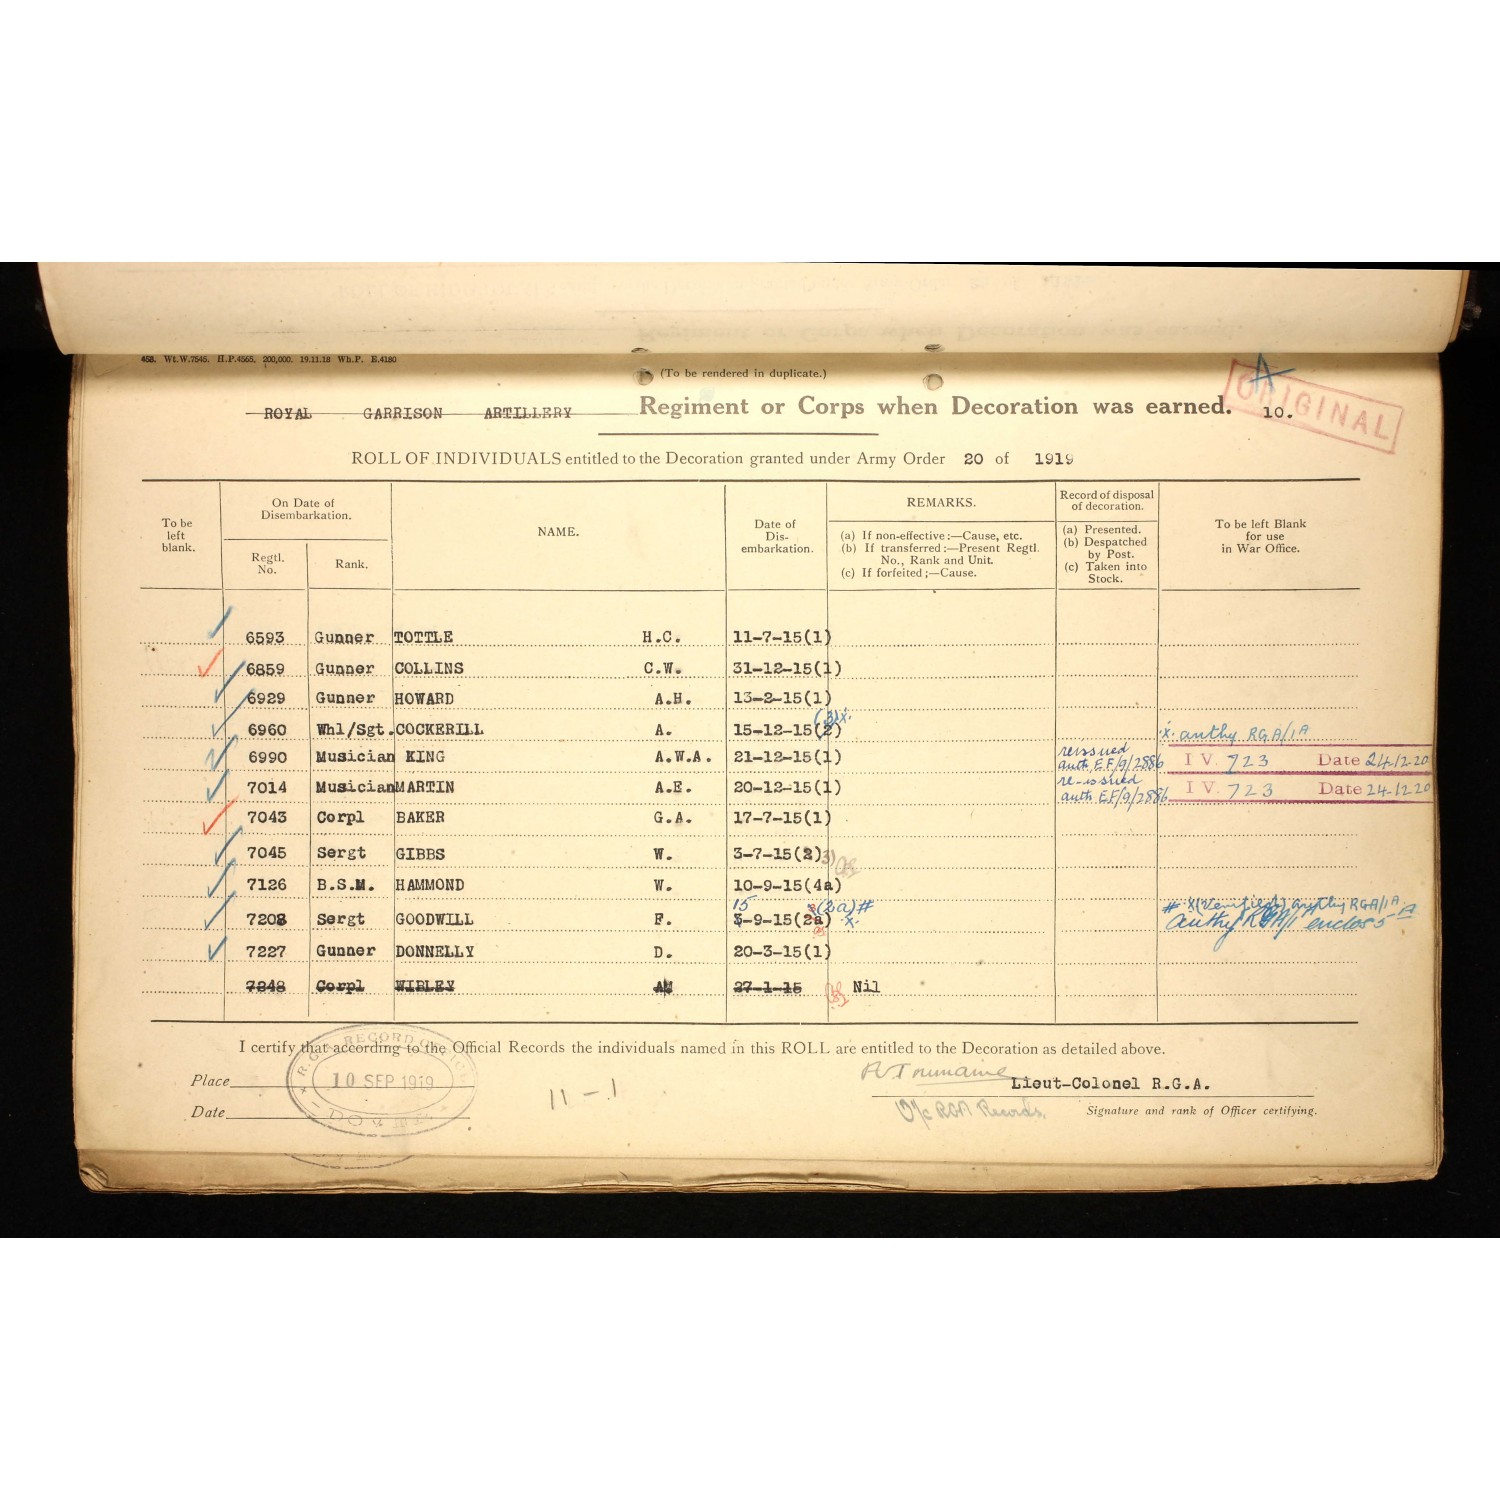 458. Wt.W.7545. H.P.4565. 200,000. 19.11.18 Wh.P. E.4180
(To be rendered in duplicate.)
A
ORIGINAL
ROYAL GARRISON ARTILLERY Regiment or Corps when Decoration was earned. 10.
ROLL OF INDIVIDUALS entitled to the Decoration granted under Army Order 20 of 1919
To be left blank.
On Date of Disembarkation.
Regtl. No.
Rank.
NAME.
Date of Dis-embarkation.
REMARKS.
(a) If non-effective:—Cause, etc.
(b) If transferred:—Present Regtl. No., Rank and Unit.
(c) If forfeited;—Cause.
Record of disposal of decoration.
(a) Presented.
(b) Despatched by Post.
(c) Taken into Stock.
To be left Blank for use in War Office.
6593 Gunner TOTTLE H.C. 11-7-15(1)
6859 Gunner COLLINS C.W. 31-12-15(1)
6929 Gunner HOWARD A.H. 13-2-15(1)
(3)x.
6960 Whl/Sgt. COCKERILL A. 15-12-15(2) x. authy RGA/1A
6990 Musician KING A.W.A. 21-12-15(1) reissued auth EF/9/2886 I V. 723 Date 24-12-20
7014 Musician MARTIN A.E. 20-12-15(1) re-issued auth EF/9/2886 I V. 723 Date 24-12-20
7043 Corpl BAKER G.A. 17-7-15(1)
7045 Sergt GIBBS W. 3-7-15(2)3)
7126 B.S.M. HAMMOND W. 10-9-15(4a)
15 (2a)# # x(Verified) authy RGA/1A
7208 Sergt GOODWILL F. 3-9-15(2a) x. authy RGA/1A enclos 5
7227 Gunner DONNELLY D. 20-3-15(1)
7248 Corpl WIBLEY AM 27-1-15 Nil
I certify that according to the Official Records the individuals named in this ROLL are entitled to the Decoration as detailed above.
R.G.A. RECORD OFFICE
10 SEP 1919
Place
Date
11-1
Lieut-Colonel R.G.A.
O/c RGA Records.
Signature and rank of Officer certifying.